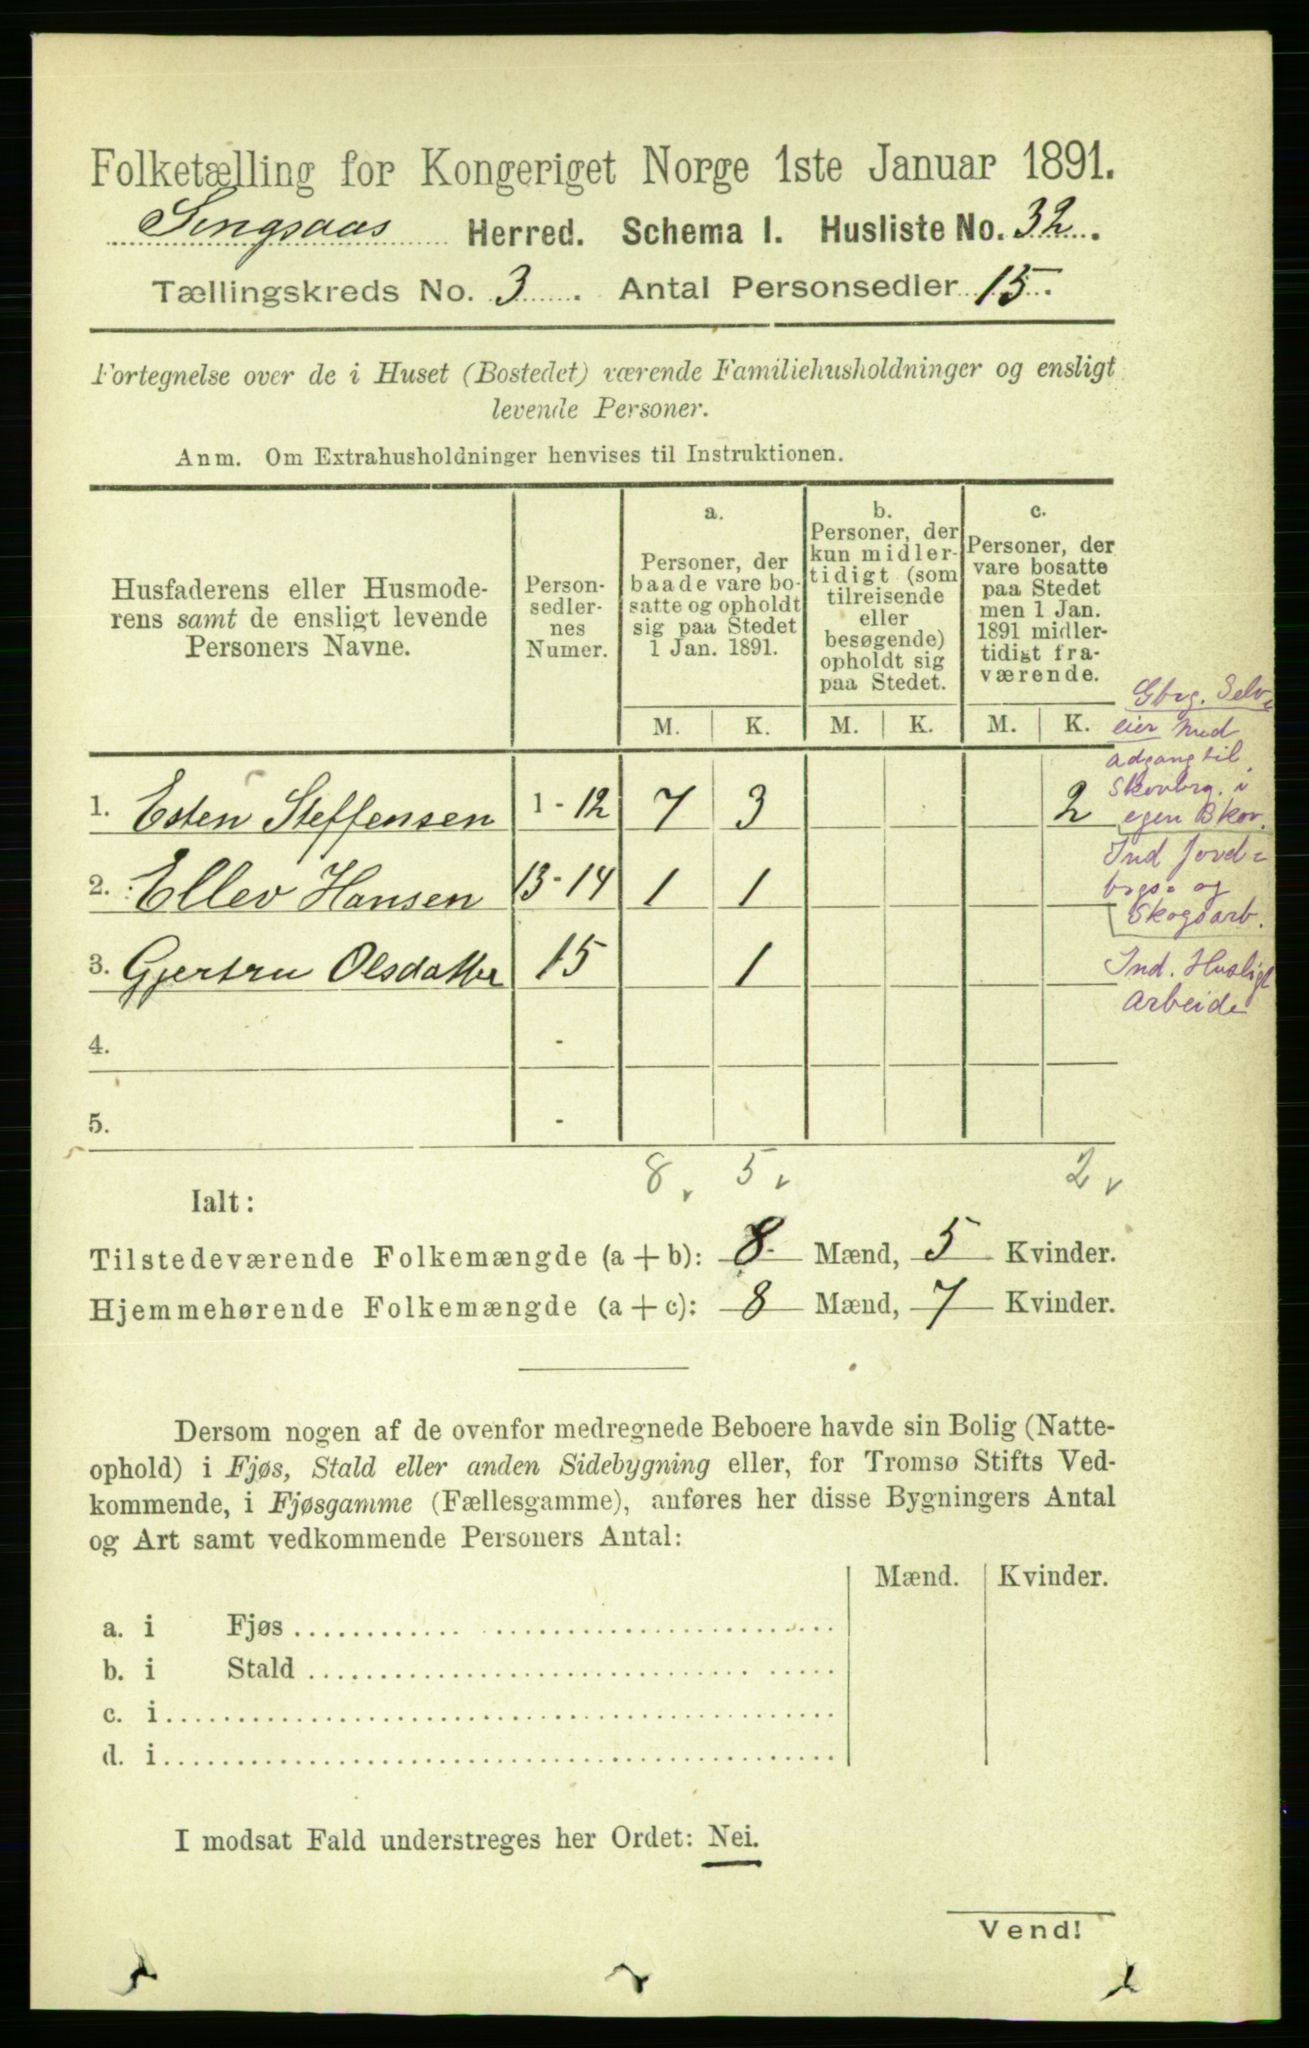 Folketælling for Kongeriget Norge 1ste Januar 1891.
Singsaas Herred. Schema I. Husliste No. 32.
Tællingskreds No. 3. Antal Personsedler 15.
Fortegnelse over de i Huset (Bostedet) værende Familiehusholdninger og ensligt
levende Personer.
Anm. Om Extrahusholdninger henvises til Instruktionen.
Husfaderens eller Husmode-
rens samt de ensligt levende
Personers Navne.
Person-
sedler-
nes
Numer.
a.
Personer, der
baade vare bo-
satte og opholdt
sig paa Stedet
1 Jan. 1891.
b.
Personer, der
kun midler-
tidigt (som
tilreisende
eller
besøgende)
opholdt sig
paa Stedet.
c.
Personer, der
vare bosatte
paa Stedet
men 1 Jan.
1891 midler-
tidigt fra-
værende.
M. K. M. K. M. K.
1. Esten Steffensen 1-12 7 3 2
2. Ellev Hansen 13-14 1 1
3. Gjertru Olsdatter 15 1
4. -
5. -
Gbrg. Selv-
eier med
adgang til
Skovbrg. i
egen Skov.
Ind jord-
brgs- og
Skogsarb.
Ind. Husligt
Arbeide
8 v 5 v 2 v
Ialt:
Tilstedeværende Folkemængde (a + b): 8 Mænd, 5 Kvinder.
Hjemmehørende Folkemængde (a + c): 8 Mænd, 7 Kvinder.
Dersom nogen af de ovenfor medregnede Beboere havde sin Bolig (Natte-
ophold) i Fjøs, Stald eller anden Sidebygning eller, for Tromsø Stifts Ved-
kommende, i Fjøsgamme (Fællesgamme), anføres her disse Bygningers Antal
og Art samt vedkommende Personers Antal:
Mænd. Kvinder.
a. i Fjøs
b. i Stald
c. i
d. i
I modsat Fald understreges her Ordet: Nei.
Vend!